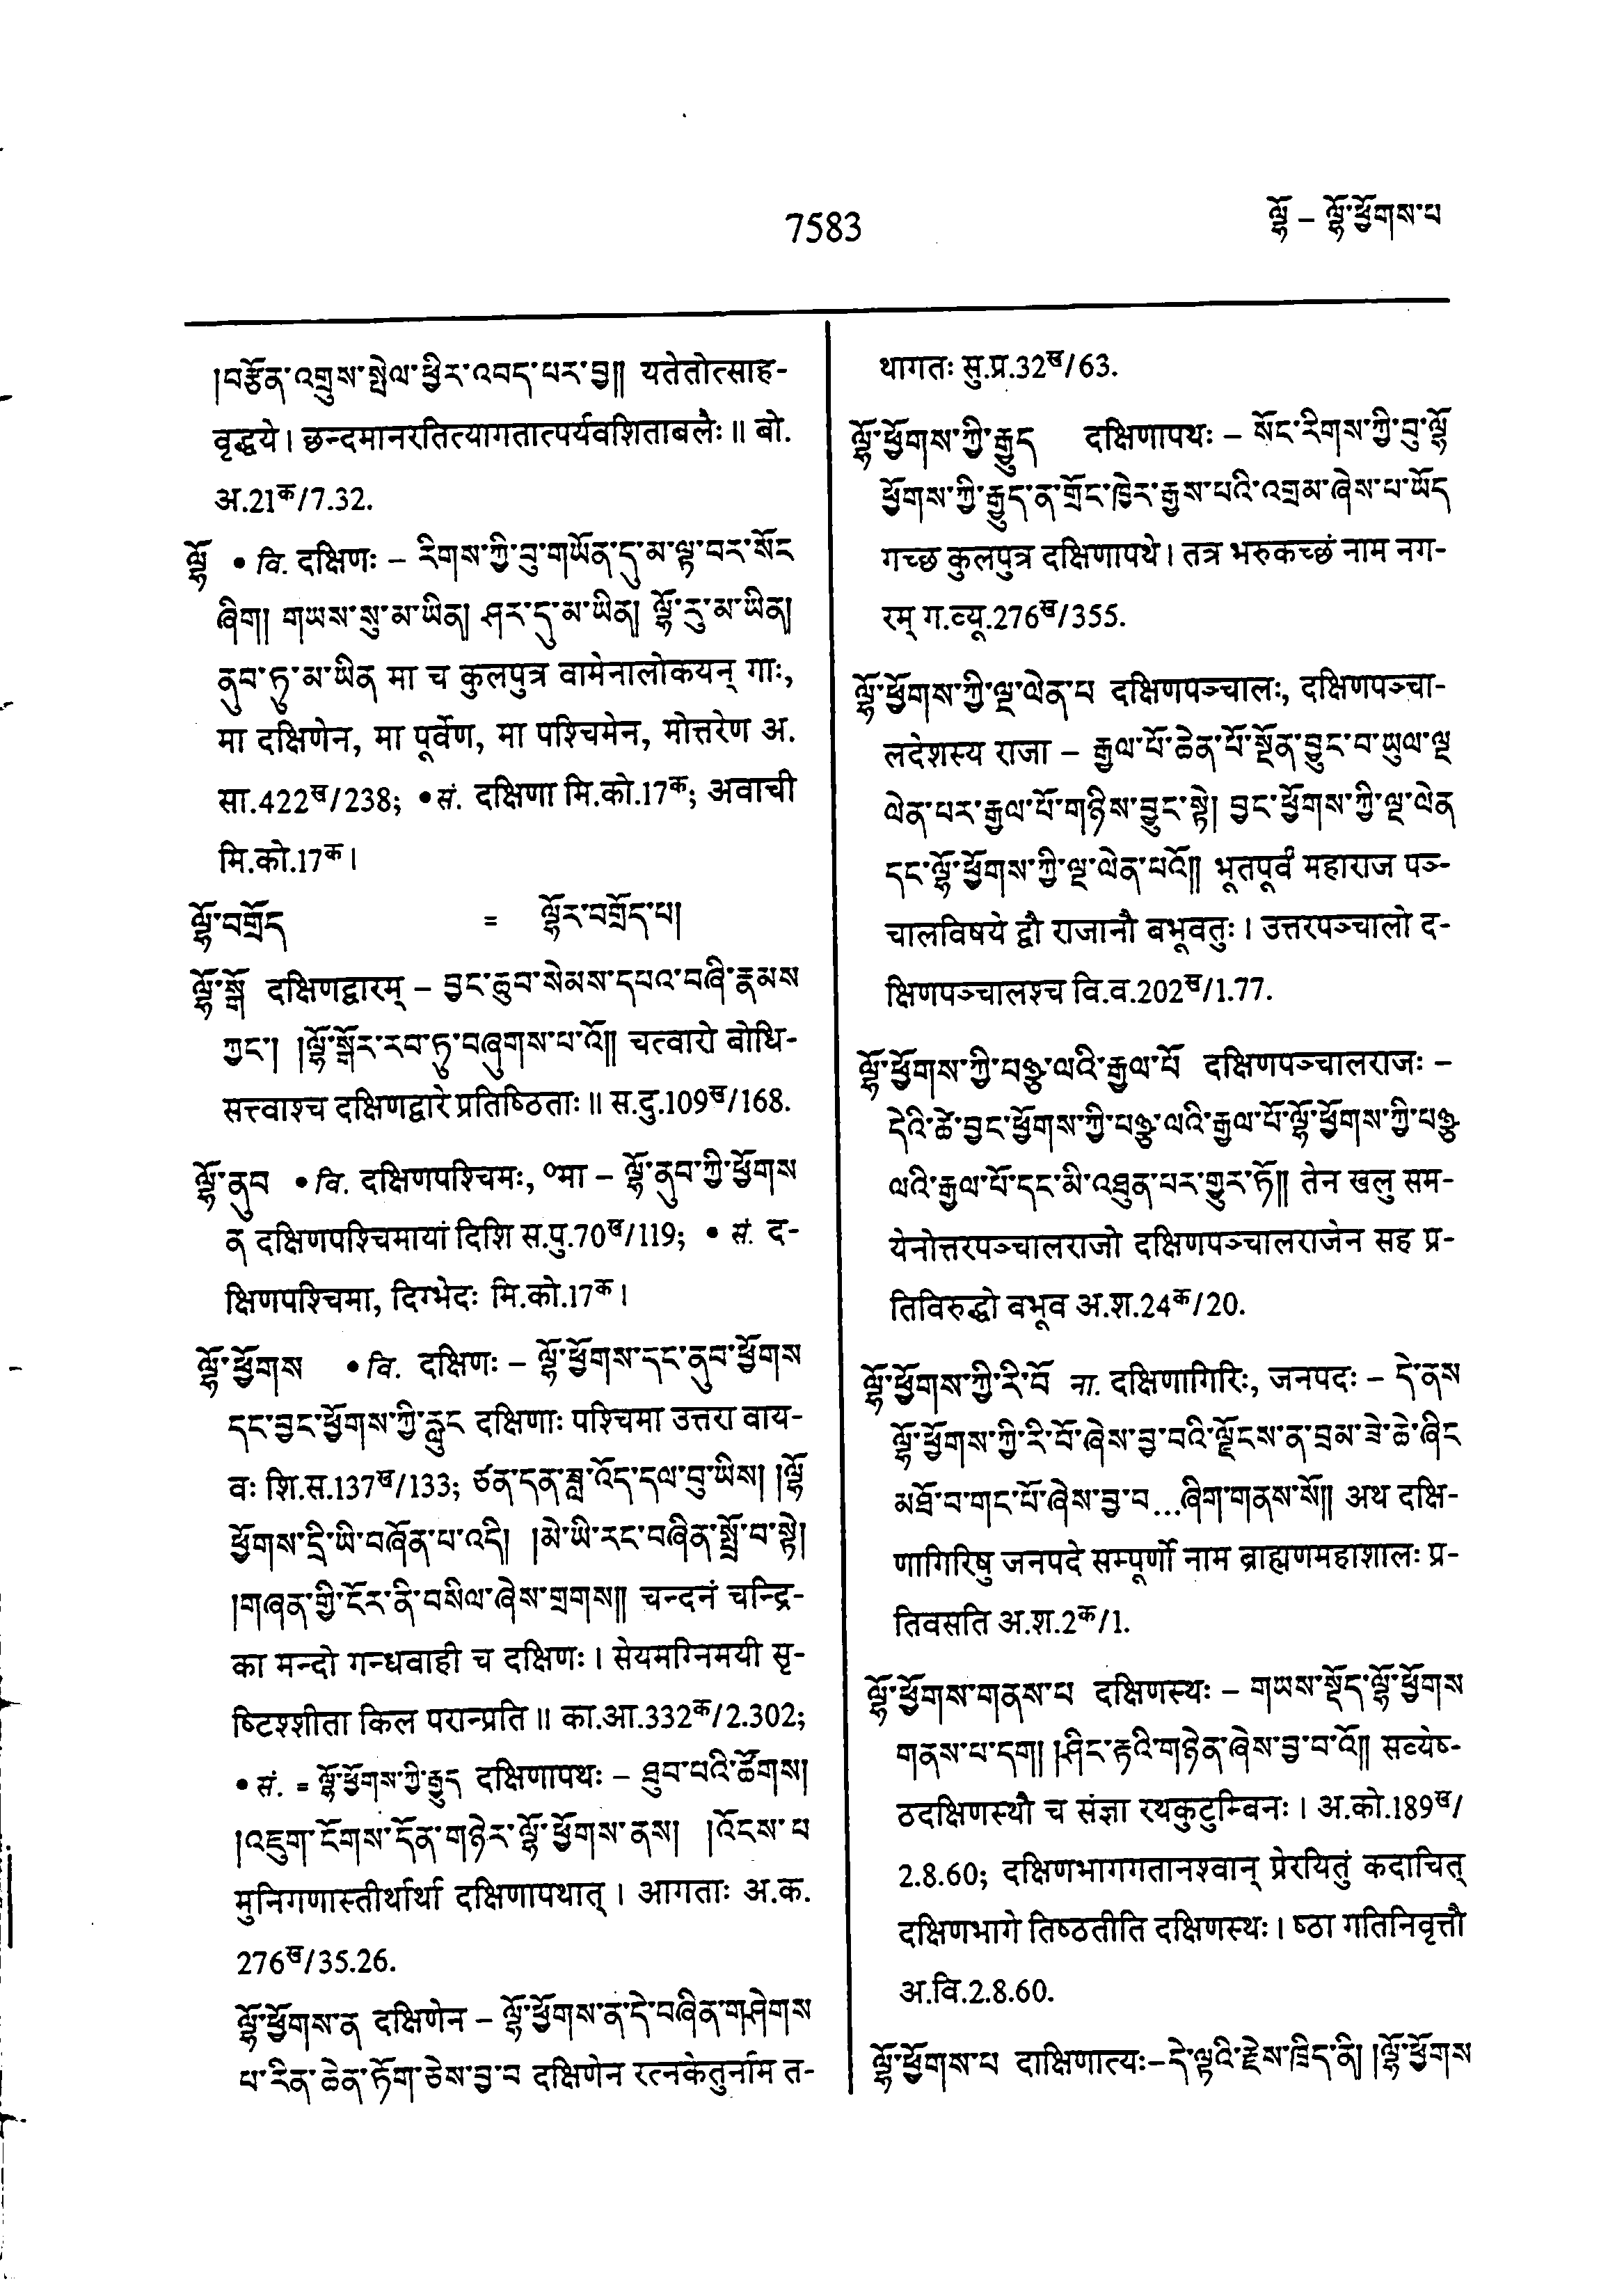 7583
ལྷོ – ལྷོ་ཕྱོགས་པ
།བརྩོན་འགྲུས་སྤེལ་ཕྱིར་འབད་པར་བྱ།། यतेतोत्साह-
वृद्धये। छन्दमानरतित्यागतात्पर्यवशिताबलैः॥ बो.
अ.21क/7.32.
ལྷོ • वि. दक्षिणः – རིགས་ཀྱི་བུ་གཡོན་དུ་མ་ལྟ་བར་སོང
ཞིག། གཡས་སུ་མ་ཡིན། ཤར་དུ་མ་ཡིན། ལྷོ་རུ་མ་ཡིན།
ནུབ་ཏུ་མ་ཡིན मा च कुलपुत्र वामेनालोकयन् गाः,
मा दक्षिणेन, मा पूर्वेण, मा पश्चिमेन, मोत्तरेण अ.
सा.422ख/238; • सं. दक्षिणा मि.को.17क; अवाची
मि.को.17क।
ལྷོ་བགྲོད = ལྷོར་བགྲོད་པ།
ལྷོ་སྒོ दक्षिणद्वारम् – བྱང་ཆུབ་སེམས་དཔའ་བཞི་རྣམས
ཀྱང་། །ལྷོ་སྒོར་རབ་ཏུ་བཞུགས་པ་འོ།། चत्वारो बोधि-
सत्त्वाश्च दक्षिणद्वारे प्रतिष्ठिताः॥ स.दु.109ख/168.
ལྷོ་ནུབ • वि. दक्षिणपश्चिमः, ०मा – ལྷོ་ནུབ་ཀྱི་ཕྱོགས
ན दक्षिणपश्चिमायां दिशि स.पु.70ख/119; • सं. द-
क्षिणपश्चिमा, दिग्भेदः मि.को.17क।
ལྷོ་ཕྱོགས • वि. दक्षिणः – ལྷོ་ཕྱོགས་དང་ནུབ་ཕྱོགས
དང་བྱང་ཕྱོགས་ཀྱི་རླུང दक्षिणाः पश्चिमा उत्तरा वाय-
वः शि.स.137ख/133; ཙན་དན་ཟླ་འོད་དལ་བུ་ཡིས། །ལྷོ
ཕྱོགས་དྲི་ཡི་བཞོན་པ་འདི། །མེ་ཡི་རང་བཞིན་སྤྲོ་བ་སྟེ།
།གཞན་གྱི་ངོར་ནི་བསིལ་ཞེས་གྲགས།། चन्दनं चन्द्रि-
का मन्दो गन्धवाही च दक्षिणः। सेयमग्निमयी सृ-
ष्टिश्शीता किल परान्प्रति॥ का.आ.332क/2.302;
• सं. = ལྷོ་ཕྱོགས་ཀྱི་རྒྱུད दक्षिणापथः – ཐུབ་པའི་ཚོགས།
།འཇུག་ངོགས་དོན་གཉེར་ལྷོ་ཕྱོགས་ནས། །འོངས་པ
मुनिगणास्तीर्थार्था दक्षिणापथात्। आगताः अ.क.
276ख/35.26.
ལྷོ་ཕྱོགས་ན दक्षिणेन – ལྷོ་ཕྱོགས་ན་དེ་བཞིན་གཤེགས
པ་རིན་ཆེན་ཏོག་ཅེས་བྱ་བ दक्षिणेन रत्नकेतुर्नाम त-
थागतः सु.प्र.32ख/63.
ལྷོ་ཕྱོགས་ཀྱི་རྒྱུད दक्षिणापथः – སོང་རིགས་ཀྱི་བུ་ལྷོ
ཕྱོགས་ཀྱི་རྒྱུད་ན་གྲོང་ཁྱེར་རྒྱས་པའི་འགྲམ་ཞེས་པ་ཡོད
गच्छ कुलपुत्र दक्षिणापथे। तत्र भरुकच्छं नाम नग-
रम् ग.व्यू.276ख/355.
ལྷོ་ཕྱོགས་ཀྱི་ལྔ་ལེན་པ दक्षिणपञ्चालः, दक्षिणपञ्चा-
लदेशस्य राजा – རྒྱལ་པོ་ཆེན་པོ་སྔོན་བྱུང་བ་ཡུལ་ལྔ
ལེན་པར་རྒྱལ་པོ་གཉིས་བྱུང་སྟེ། བྱང་ཕྱོགས་ཀྱི་ལྔ་ལེན
དང་ལྷོ་ཕྱོགས་ཀྱི་ལྔ་ལེན་པའོ།། भूतपूर्वं महाराज पञ्-
चालविषये द्वौ राजानौ बभूवतुः। उत्तरपञ्चालो द-
क्षिणपञ्चालश्च वि.व.202ख/1.77.
ལྷོ་ཕྱོགས་ཀྱི་པཉྩ་ལའི་རྒྱལ་པོ दक्षिणपञ्चालराजः –
དེའི་ཚེ་བྱང་ཕྱོགས་ཀྱི་པཉྩ་ལའི་རྒྱལ་པོ་ལྷོ་ཕྱོགས་ཀྱི་པཉྩ
ལའི་རྒྱལ་པོ་དང་མི་འཐུན་པར་གྱུར་ཏོ།། तेन खलु सम-
येनोत्तरपञ्चालराजो दक्षिणपञ्चालराजेन सह प्र-
तिविरुद्धो बभूव अ.श.24क/20.
ལྷོ་ཕྱོགས་ཀྱི་རི་བོ ना. दक्षिणागिरिः, जनपदः – དེ་ནས
ལྷོ་ཕྱོགས་ཀྱི་རི་བོ་ཞེས་བྱ་བའི་ལྗོངས་ན་བྲམ་ཟེ་ཆེ་ཞིང
མཐོ་བ་གང་པོ་ཞེས་བྱ་བ...ཞིག་གནས་སོ།། अथ दक्षि-
णागिरिषु जनपदे सम्पूर्णो नाम ब्राह्मणमहाशालः प्र-
तिवसति अ.श.2क/1.
ལྷོ་ཕྱོགས་གནས་པ दक्षिणस्थः – གཡས་སྡོད་ལྷོ་ཕྱོགས
གནས་པ་དག། །ཤིང་རྟའི་གཉེན་ཞེས་བྱ་བ་འོ།། सव्येष्-
ठदक्षिणस्थौ च संज्ञा रथकुटुम्बिनः। अ.को.189ख/
2.8.60; दक्षिणभागगतानश्वान् प्रेरयितुं कदाचित्
दक्षिणभागे तिष्ठतीति दक्षिणस्थः। ष्ठा गतिनिवृत्तौ
अ.वि.2.8.60.
ལྷོ་ཕྱོགས་པ दाक्षिणात्यः–དེ་ལྟའི་རྗེས་ཁྲིད་ནི། །ལྷོ་ཕྱོགས